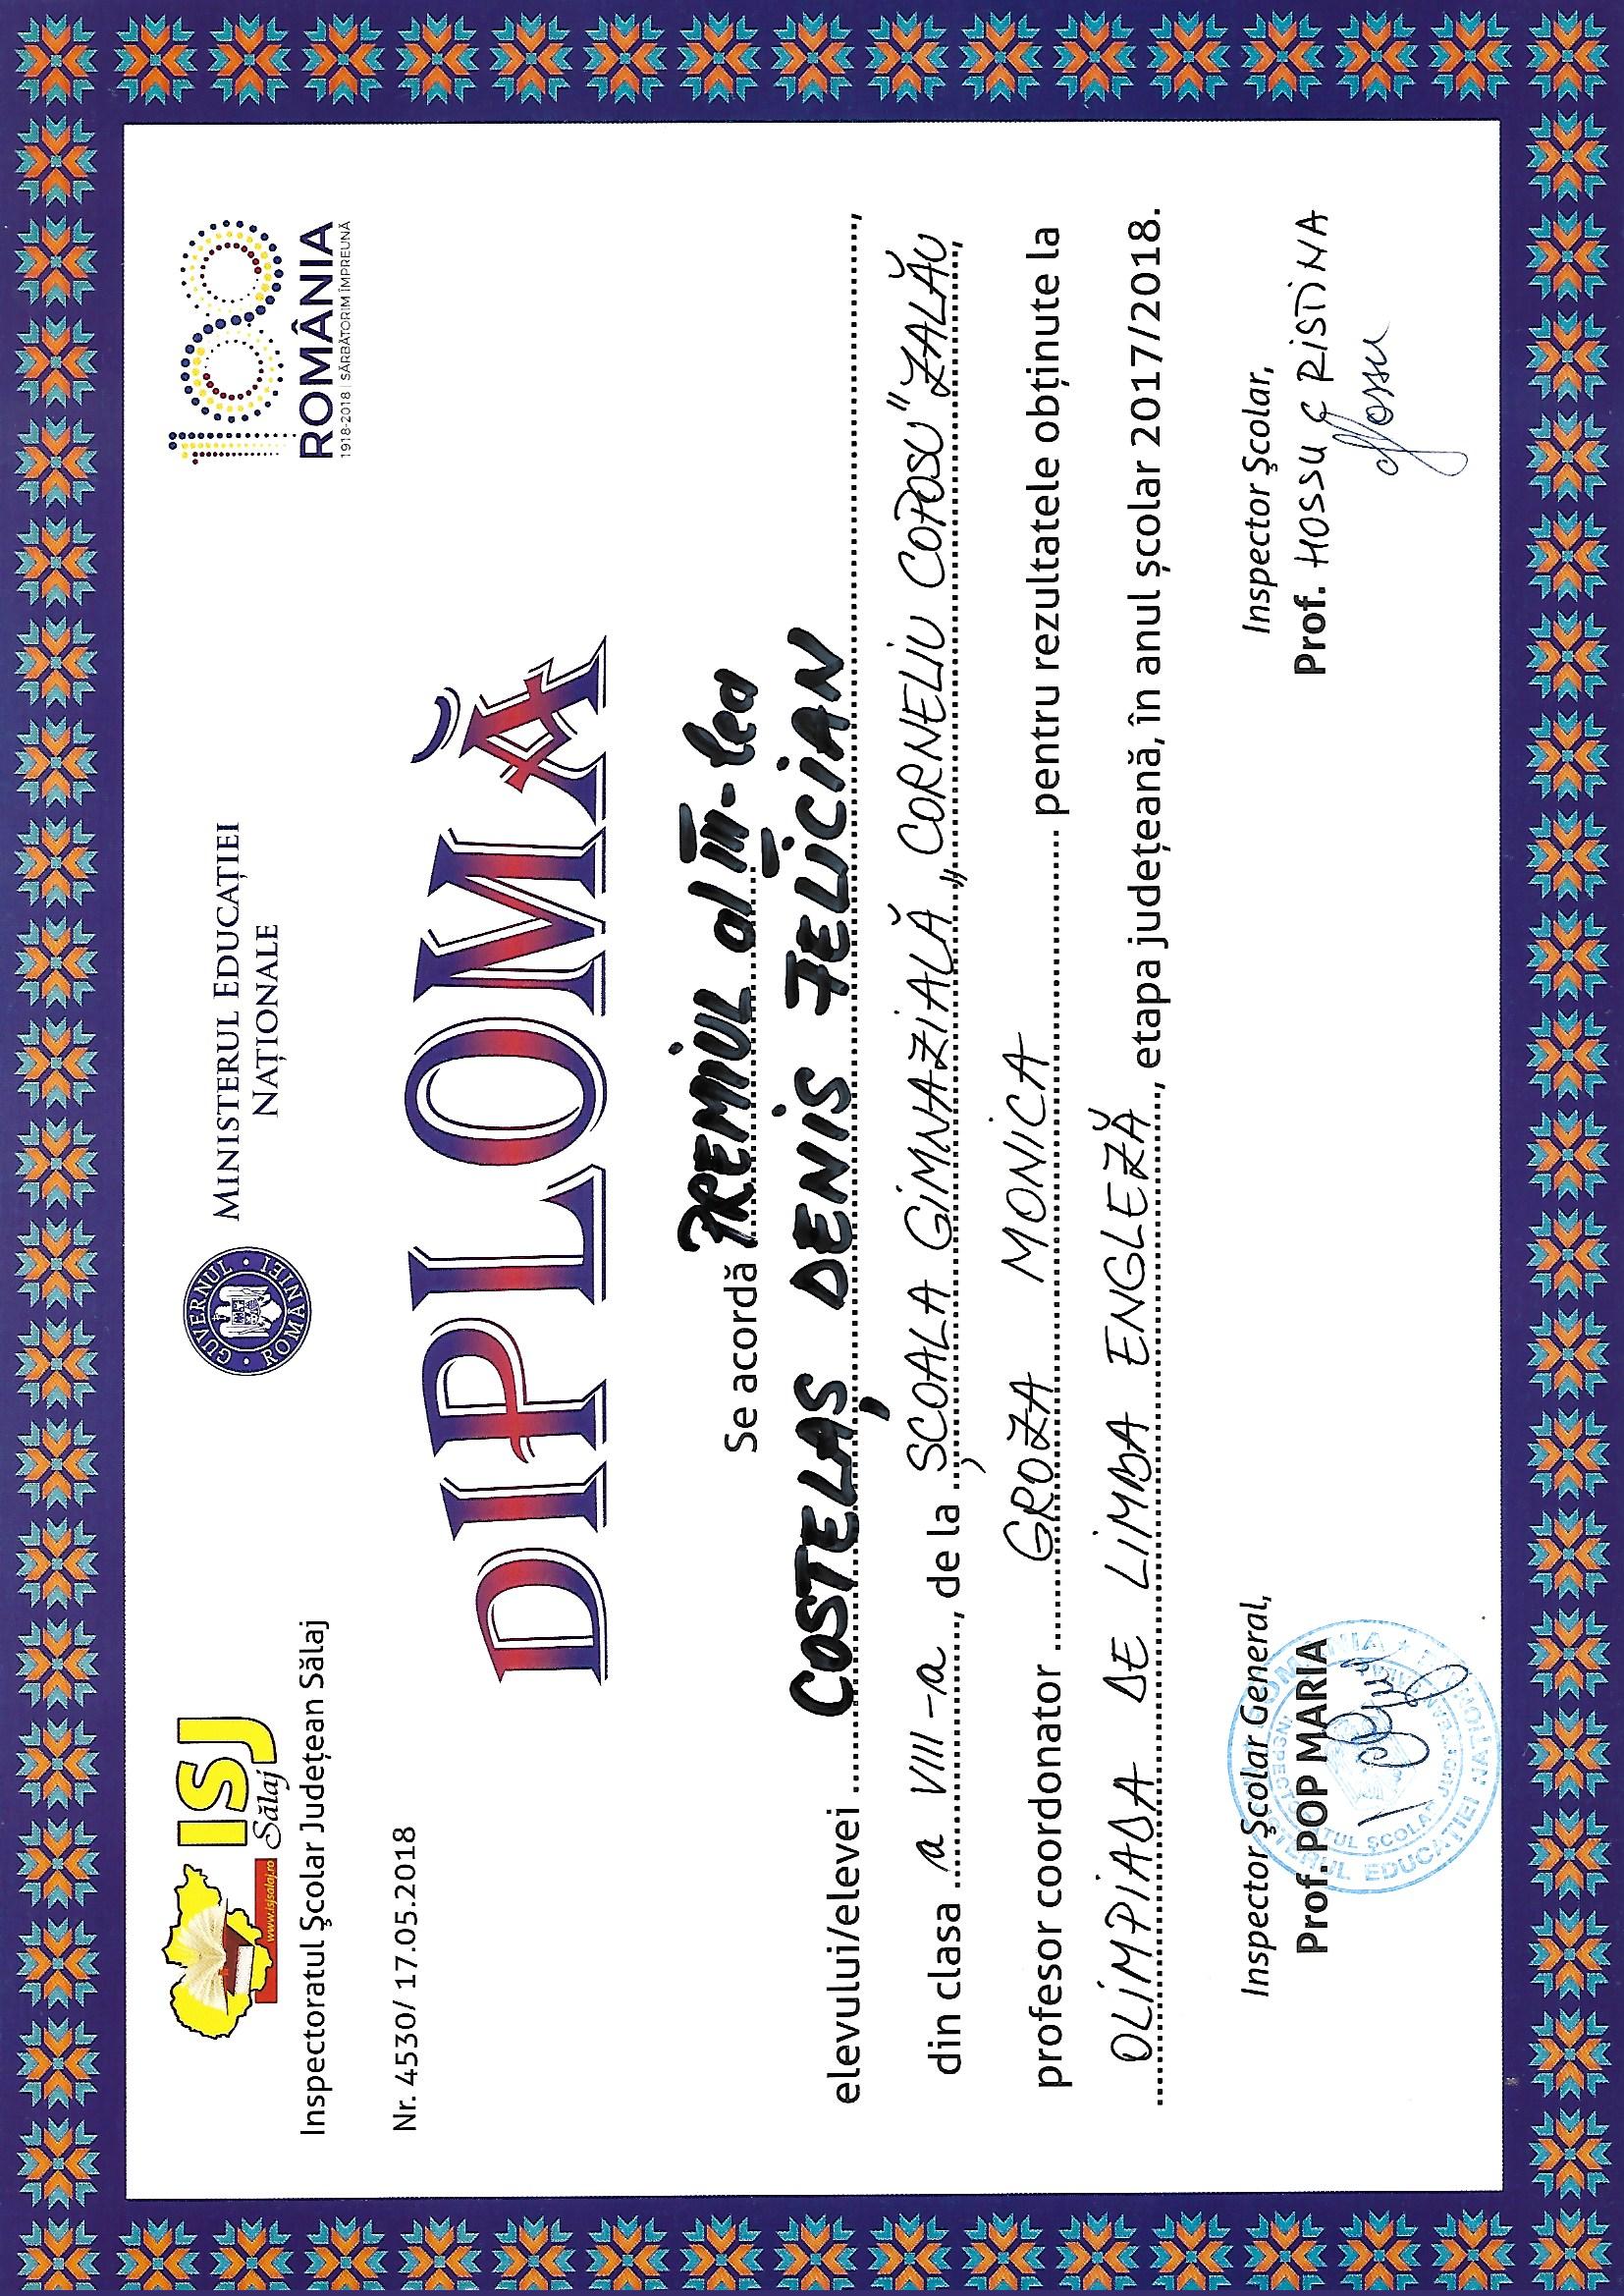 ISJ
Sălaj
www.isjsalaj.ro
Inspectoratul Şcolar Județean Sălaj
GUVERNUL ROMÂNIEI
MINISTERUL EDUCAȚIEI
NAȚIONALE
100
ROMÂNIA
1918-2018 | SĂRBĂTORIM ÎMPREUNĂ
Nr. 4530/ 17.05.2018
DIPLOMĂ
Se acordă PREMIUL al III-lea
elevului/elevei COSTELAȘ DENIS FELICIAN,
din clasa a VIII-a, de la ȘCOALA GIMNAZIALĂ „CORNELIU COPOSU" ZALĂU,
profesor coordonator GROZA MONICA pentru rezultatele obținute la
OLIMPIADA DE LIMBA ENGLEZĂ, etapa județeană, în anul școlar 2017/2018.
Inspector Şcolar General,
Prof. POP MARIA
Inspector Şcolar,
Prof. HOSSU CRISTINA
Hossu